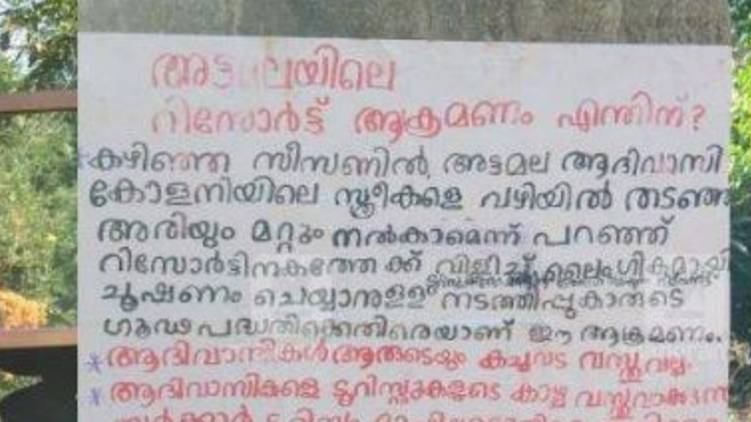 അട്ടമലയിലെ
റിസോർട്ട് ആക്രമണം എന്തിന്?
* കഴിഞ്ഞ സീസണിൽ അട്ടമല ആദിവാസി
കോളനിയിലെ സ്ത്രീകളെ വഴിയിൽ തടഞ്ഞ
അരിയും മറ്റും നൽകാമെന്ന് പറഞ്ഞ്
റിസോർട്ടിനകത്തേക്ക് വിളിച്ച് ലൈംഗികമായി
ചൂഷണം ചെയ്യാനുള്ള നടത്തിപ്പുകാരുടെ
ഗൂഢപദ്ധതിക്കെതിരെയാണ് ഈ ആക്രമണം.
* ആദിവാസികൾ ആരുടെയും കച്ചവട വസ്തുവല്ല.
* ആദിവാസികളെ ടൂറിസ്റ്റുകളുടെ കാഴ്ച വസ്തുവാക്കുന്ന